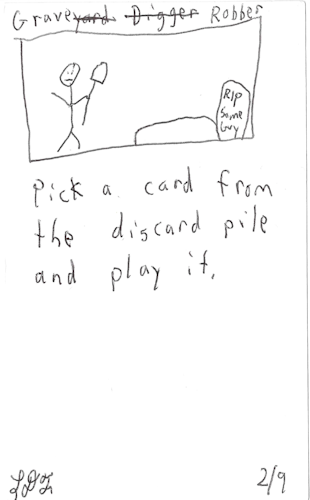 Graveyard Digger Robber
RIP
Some
Guy
Pick a card from
the discard pile
and play it.
2/9